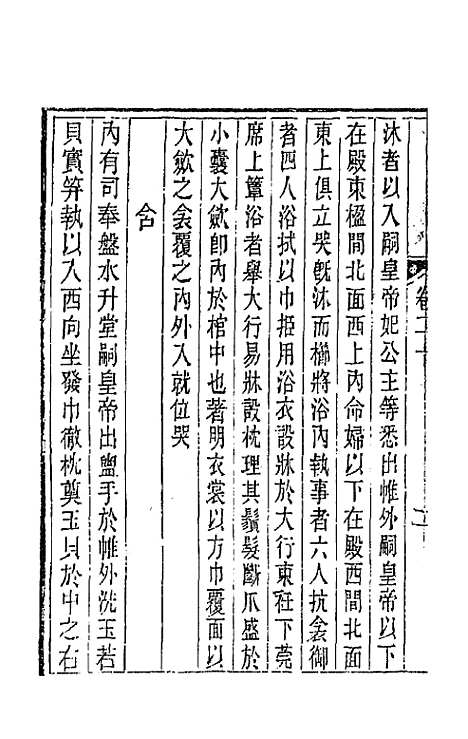 沐者以入嗣皇帝妃公主等悉出帷外嗣皇帝以下
在殿東楹間北面西上內命婦以下在殿西間北面
東上俱立哭旣沐而櫛將浴內執事者六人抗衾御
者四人浴拭以巾挋用浴衣設牀於大行東衽下莞
席上簟浴者舉大行易牀設枕理其鬚髮斷爪盛於
小囊大斂卽內於棺中也著朋衣裳以方巾覆面以
大斂之衾覆之內外入就位哭
含
內有司奉盤水升堂嗣皇帝出盥手於帷外洗玉若
貝實笲執以入西向坐發巾徹枕奠玉貝於中之右